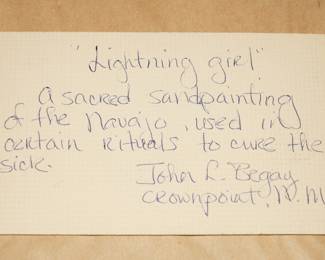 "Lightning girl"
A sacred sandpainting
of the Navajo, used in
certain rituals to cure the
sick.
John L. Begay
Crownpoint, N.M